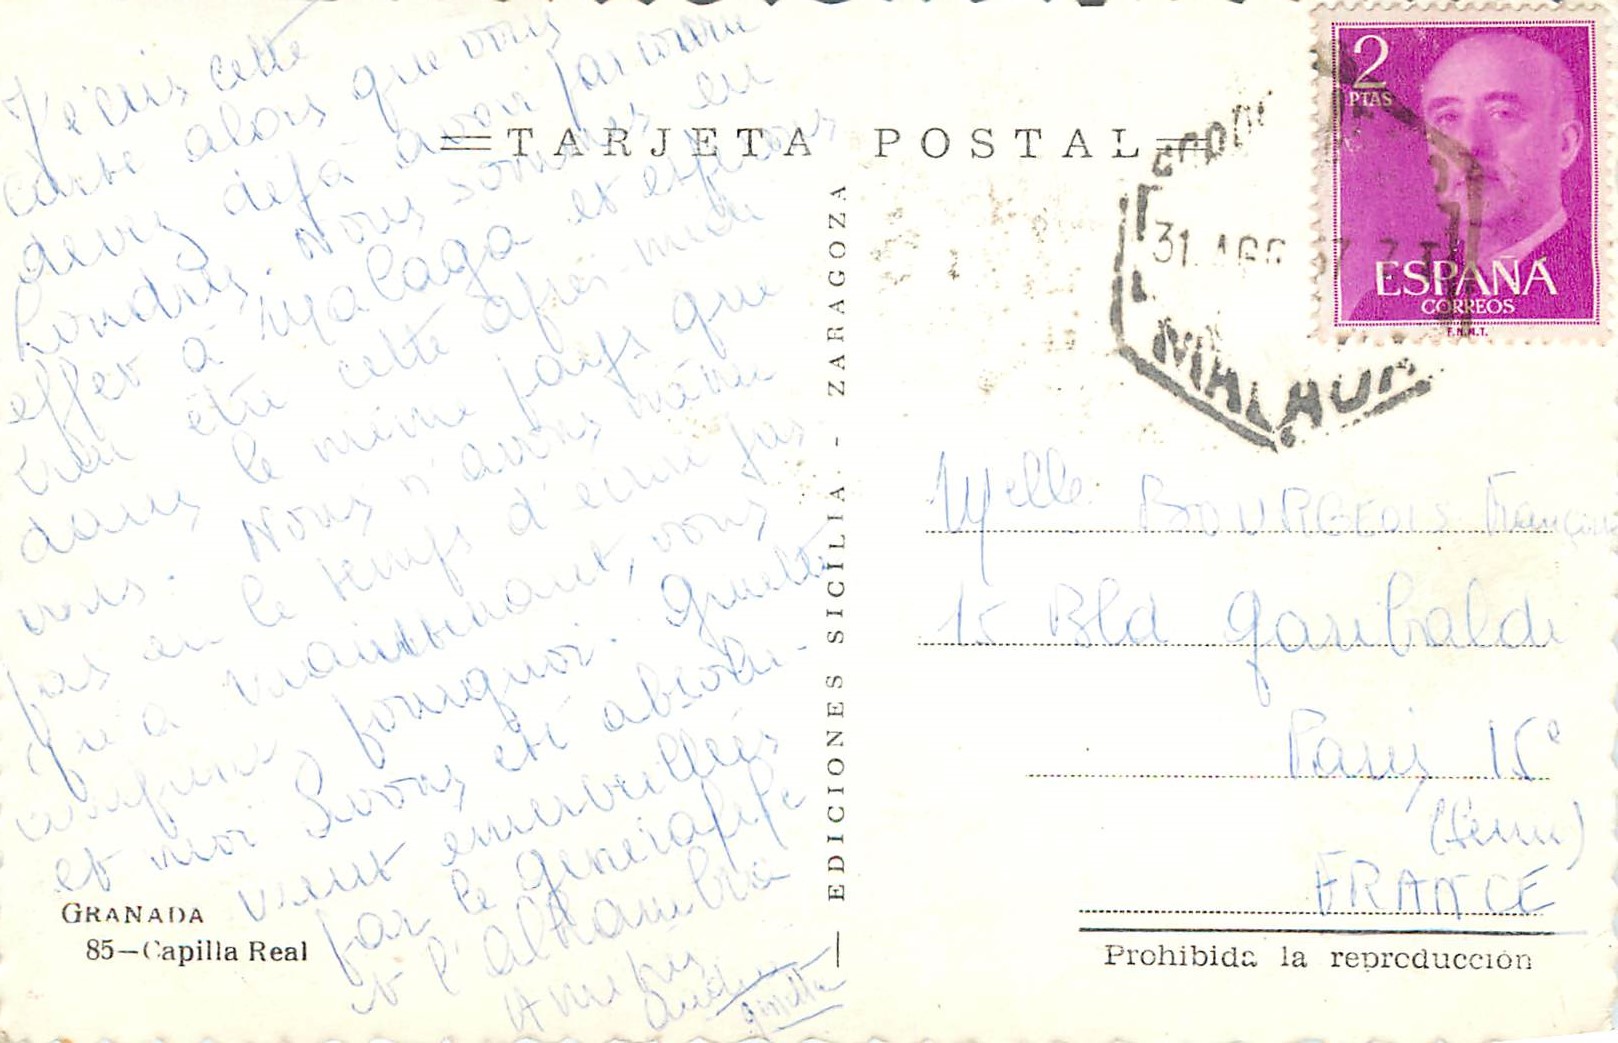 J'écris cette
carte alors que vous
devez déjà avoir parcouru
Londres. Nous sommes en
effet à Malaga et espérons
être cette après-midi
dans le même pays que
vous. Nous n'avons même
pas eu le temps d'écrire jus
qu'à maintenant, vous
pourquoi. Ginette
et moi avons été absolu-
ment émerveillés
par le généralife
et l'alhambra
Amitiés
Ginette
GRANADA
85—Capilla Real
EDICIONES SICILIA - ZARAGOZA
TARJETA POSTAL
2
PTAS
ESPAÑA
CORREOS
F.N.M.T.
31 AGO 67
Melle BOURGEOIS Françoise
15 Bld Garibaldi
Paris 15e
(Seine)
FRANCE
Prohibida la reproducción